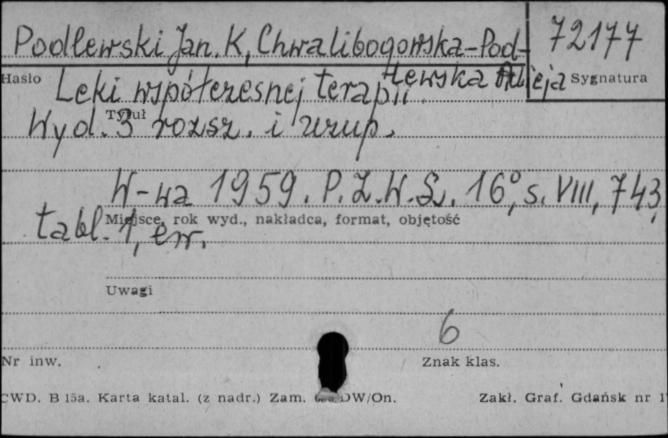 Podlewski Jan. K, Chwalibogowska-Pod- 72177
Hasło lewska Alicja Sygnatura
Leki współczesnej terapii.
Tytuł
Wyd. 3 rozsz. i uzup.
W-wa 1959. P.Z.W.L. 16°, s. VIII, 743,
Miejsce, rok wyd., nakładca, format, objętość
tabl. 1, err.
Uwagi
6
Nr inw. Znak klas.
CWD. B 15a. Karta katal. (z nadr.) Zam. DW/On. Zakł. Graf. Gdańsk nr 1